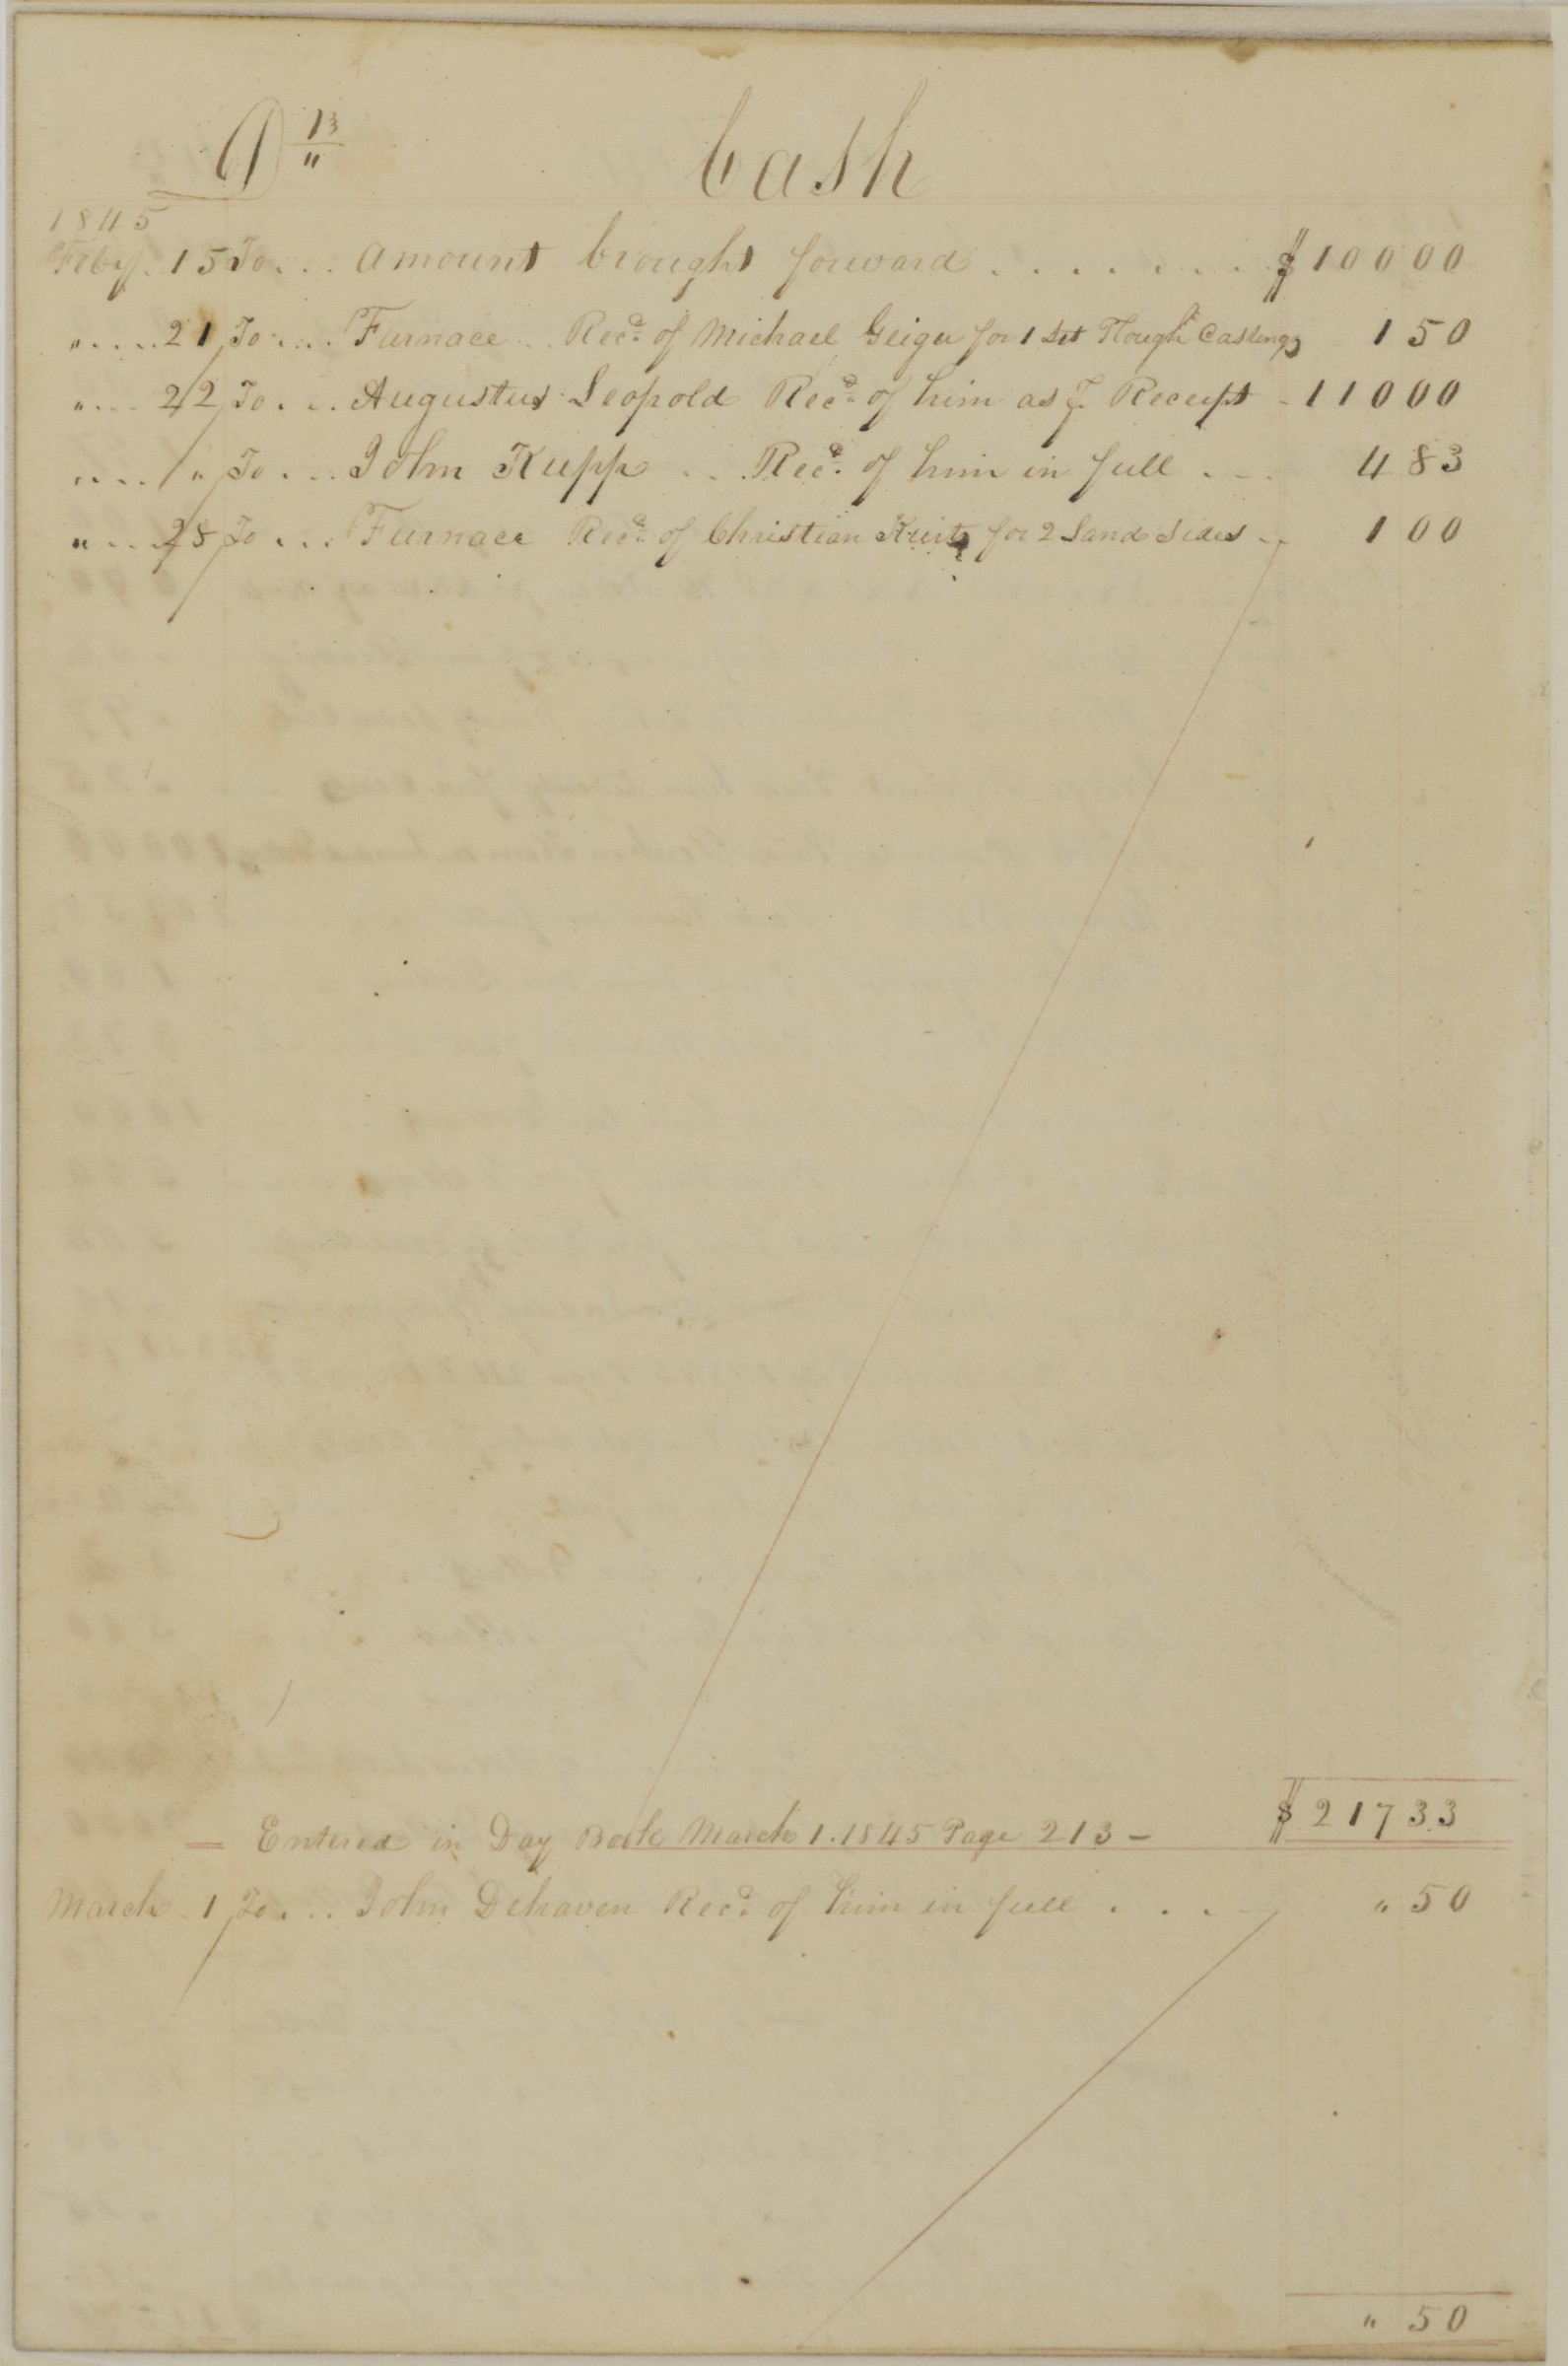 Dr 13 Cash
1845
Feby. 15 To... Amount brought forward ........ $ 100 00
".....21 To.... Furnace .. Recd. of Michael Geiger for 1 Set Plough Castings 1 50
".... 22 To... Augustus Leopold Recd. of him as pr. Receipt - 110 00
.... " To.... John Kupp ... Recd. of him in full ... 4 83
"....28 To... Furnace Recd. of Christian for 2 Land Sides .. 1 00
$ 217 33
= Entered in Day Book March 1. 1845 Page 213 -
March - 1 To.... John Dehaven Recd. of him in full .... " 50
" 50